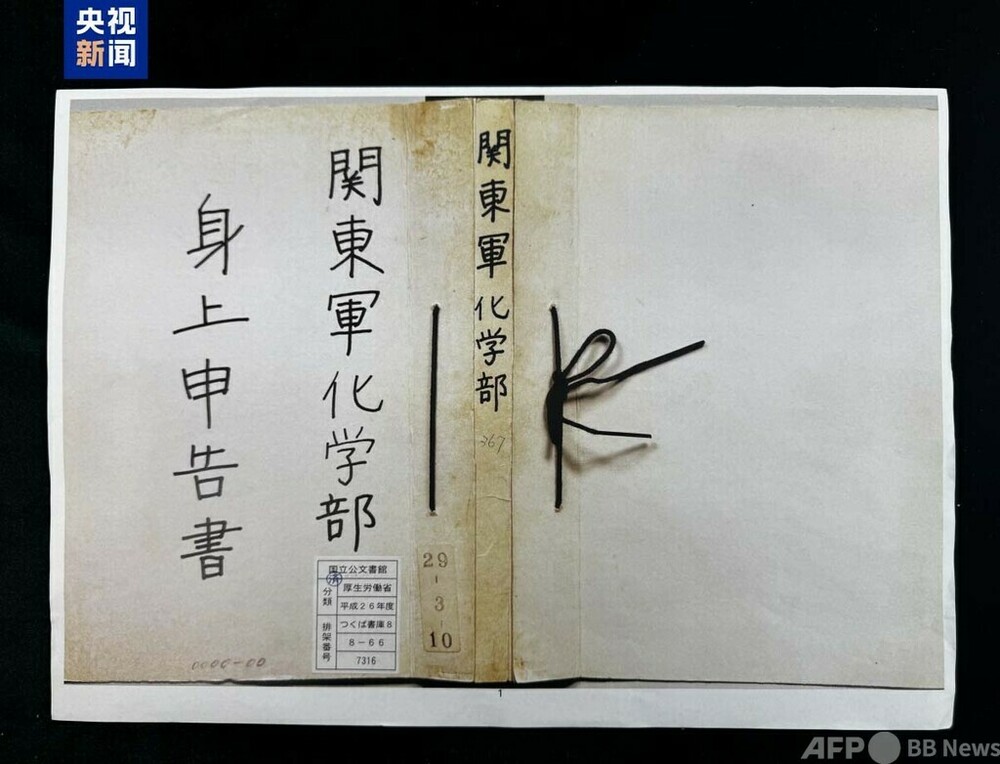 央视
新闻
関東軍化学部
身上申告書
関東軍化学部
367
国立公文書館
分類
厚生労働省
平成26年度
つくば書庫8
排架番号
8-66
7316
29
-
3
-
10
1
AFP BB News